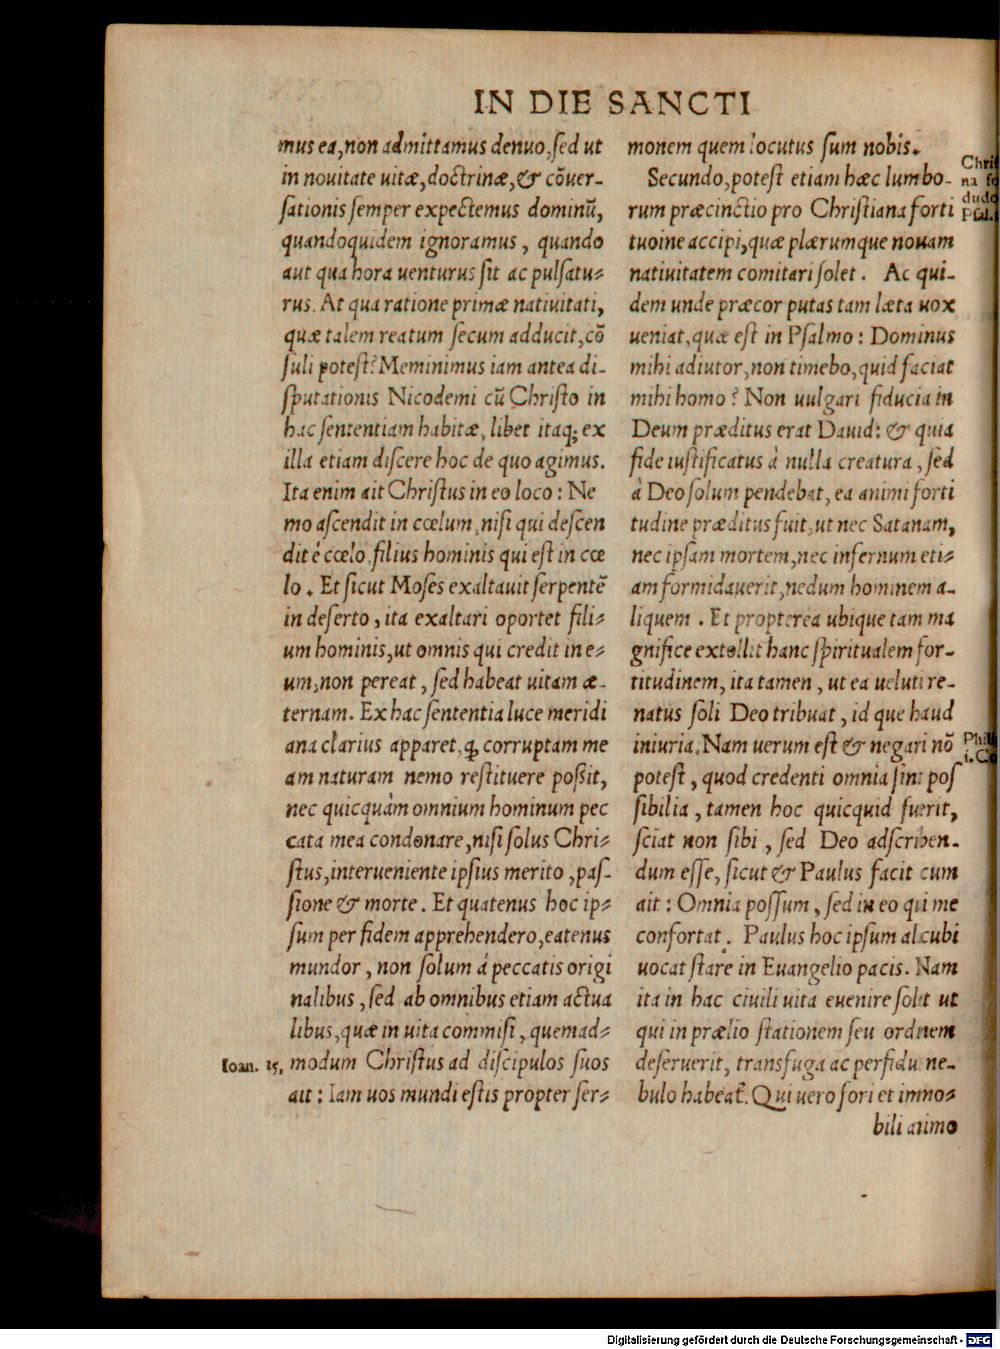 IN DIE SANCTI
mus ea, non admittamus denuo, sed ut
in nouitate uitæ, doctrinæ, & cōuer-
sationis semper expectemus dominū,
quandoquidem ignoramus, quando
aut qua hora uenturus sit ac pulsatu-
rus. At qua ratione primæ natiuitati,
quæ talem reatum secum adducit, cō
suli potest? Meminimus iam antea di-
sputationis Nicodemi cū Christo in
hac sententiam habitæ, libet itaq; ex
illa etiam discere hoc de quo agimus.
Ita enim ait Christus in eo loco: Ne
mo ascendit in cœlum, nisi qui descen
dit é cœlo, filius hominis qui est in cœ
lo. Et sicut Moses exaltauit serpentē
in deserto, ita exaltari oportet fili-
um hominis, ut omnis qui credit in e-
um, non pereat, sed habeat uitam æ-
ternam. Ex hac sententia luce meridi
ana clarius apparet, ꝙ corruptam me
am naturam nemo restituere possit,
nec quicquàm omnium hominum pec
cata mea condonare, nisi solus Chri-
stus, interueniente ipsius merito, pas-
sione & morte. Et quatenus hoc ip-
sum per fidem apprehendero, eatenus
mundor, non solum á peccatis origi
nalibus, sed ab omnibus etiam actua
libus, quæ in uita commisi, quemad-
Ioan. 15, modum Christus ad discipulos suos
ait: Iam uos mundi estis propter ser-
monem quem locutus sum nobis.
Secundo, potest etiam hæc lumbo-
rum præcinctio pro Christiana forti
tuoine accipi, quæ plærumque nouam
natiuitatem comitari solet. Ac qui-
dem unde præcor putas tam læta uox
ueniat, quæ est in Psalmo: Dominus
mihi adiutor, non timebo, quid faciat
mihi homo? Non uulgari fiducia in
Deum præditus erat Dauid: & quia
fide iustificatus à nulla creatura, sed
à Deo solum pendebat, ea animi forti
tudine præditus fuit, ut nec Satanam,
nec ipsam mortem, nec infernum eti-
am formidauerit, nedum hominem a-
liquem. Et propterea ubique tam ma
gnifice extollit hanc spiritualem for-
titudinem, ita tamen, ut ea ueluti re-
natus soli Deo tribuat, id que haud
iniuria. Nam uerum est & negari nō
potest, quod credenti omnia sint pos
sibilia, tamen hoc quicquid fuerit,
sciat non sibi, sed Deo adscriben-
dum esse, sicut & Paulus facit cum
ait: Omnia possum, sed in eo qui me
confortat. Paulus hoc ipsum alcubi
uocat stare in Euangelio pacis. Nam
ita in hac ciuili uita euenire solet ut
qui in prælio stationem seu ordinem
deseruerit, transfuga ac perfidu ne-
bulo habeat. Qui uero fori et immo-
bili animo
Chris
na fo
dudo
Psal.
Phil
i. Co
Digitalisierung gefördert durch die Deutsche Forschungsgemeinschaft - DFG